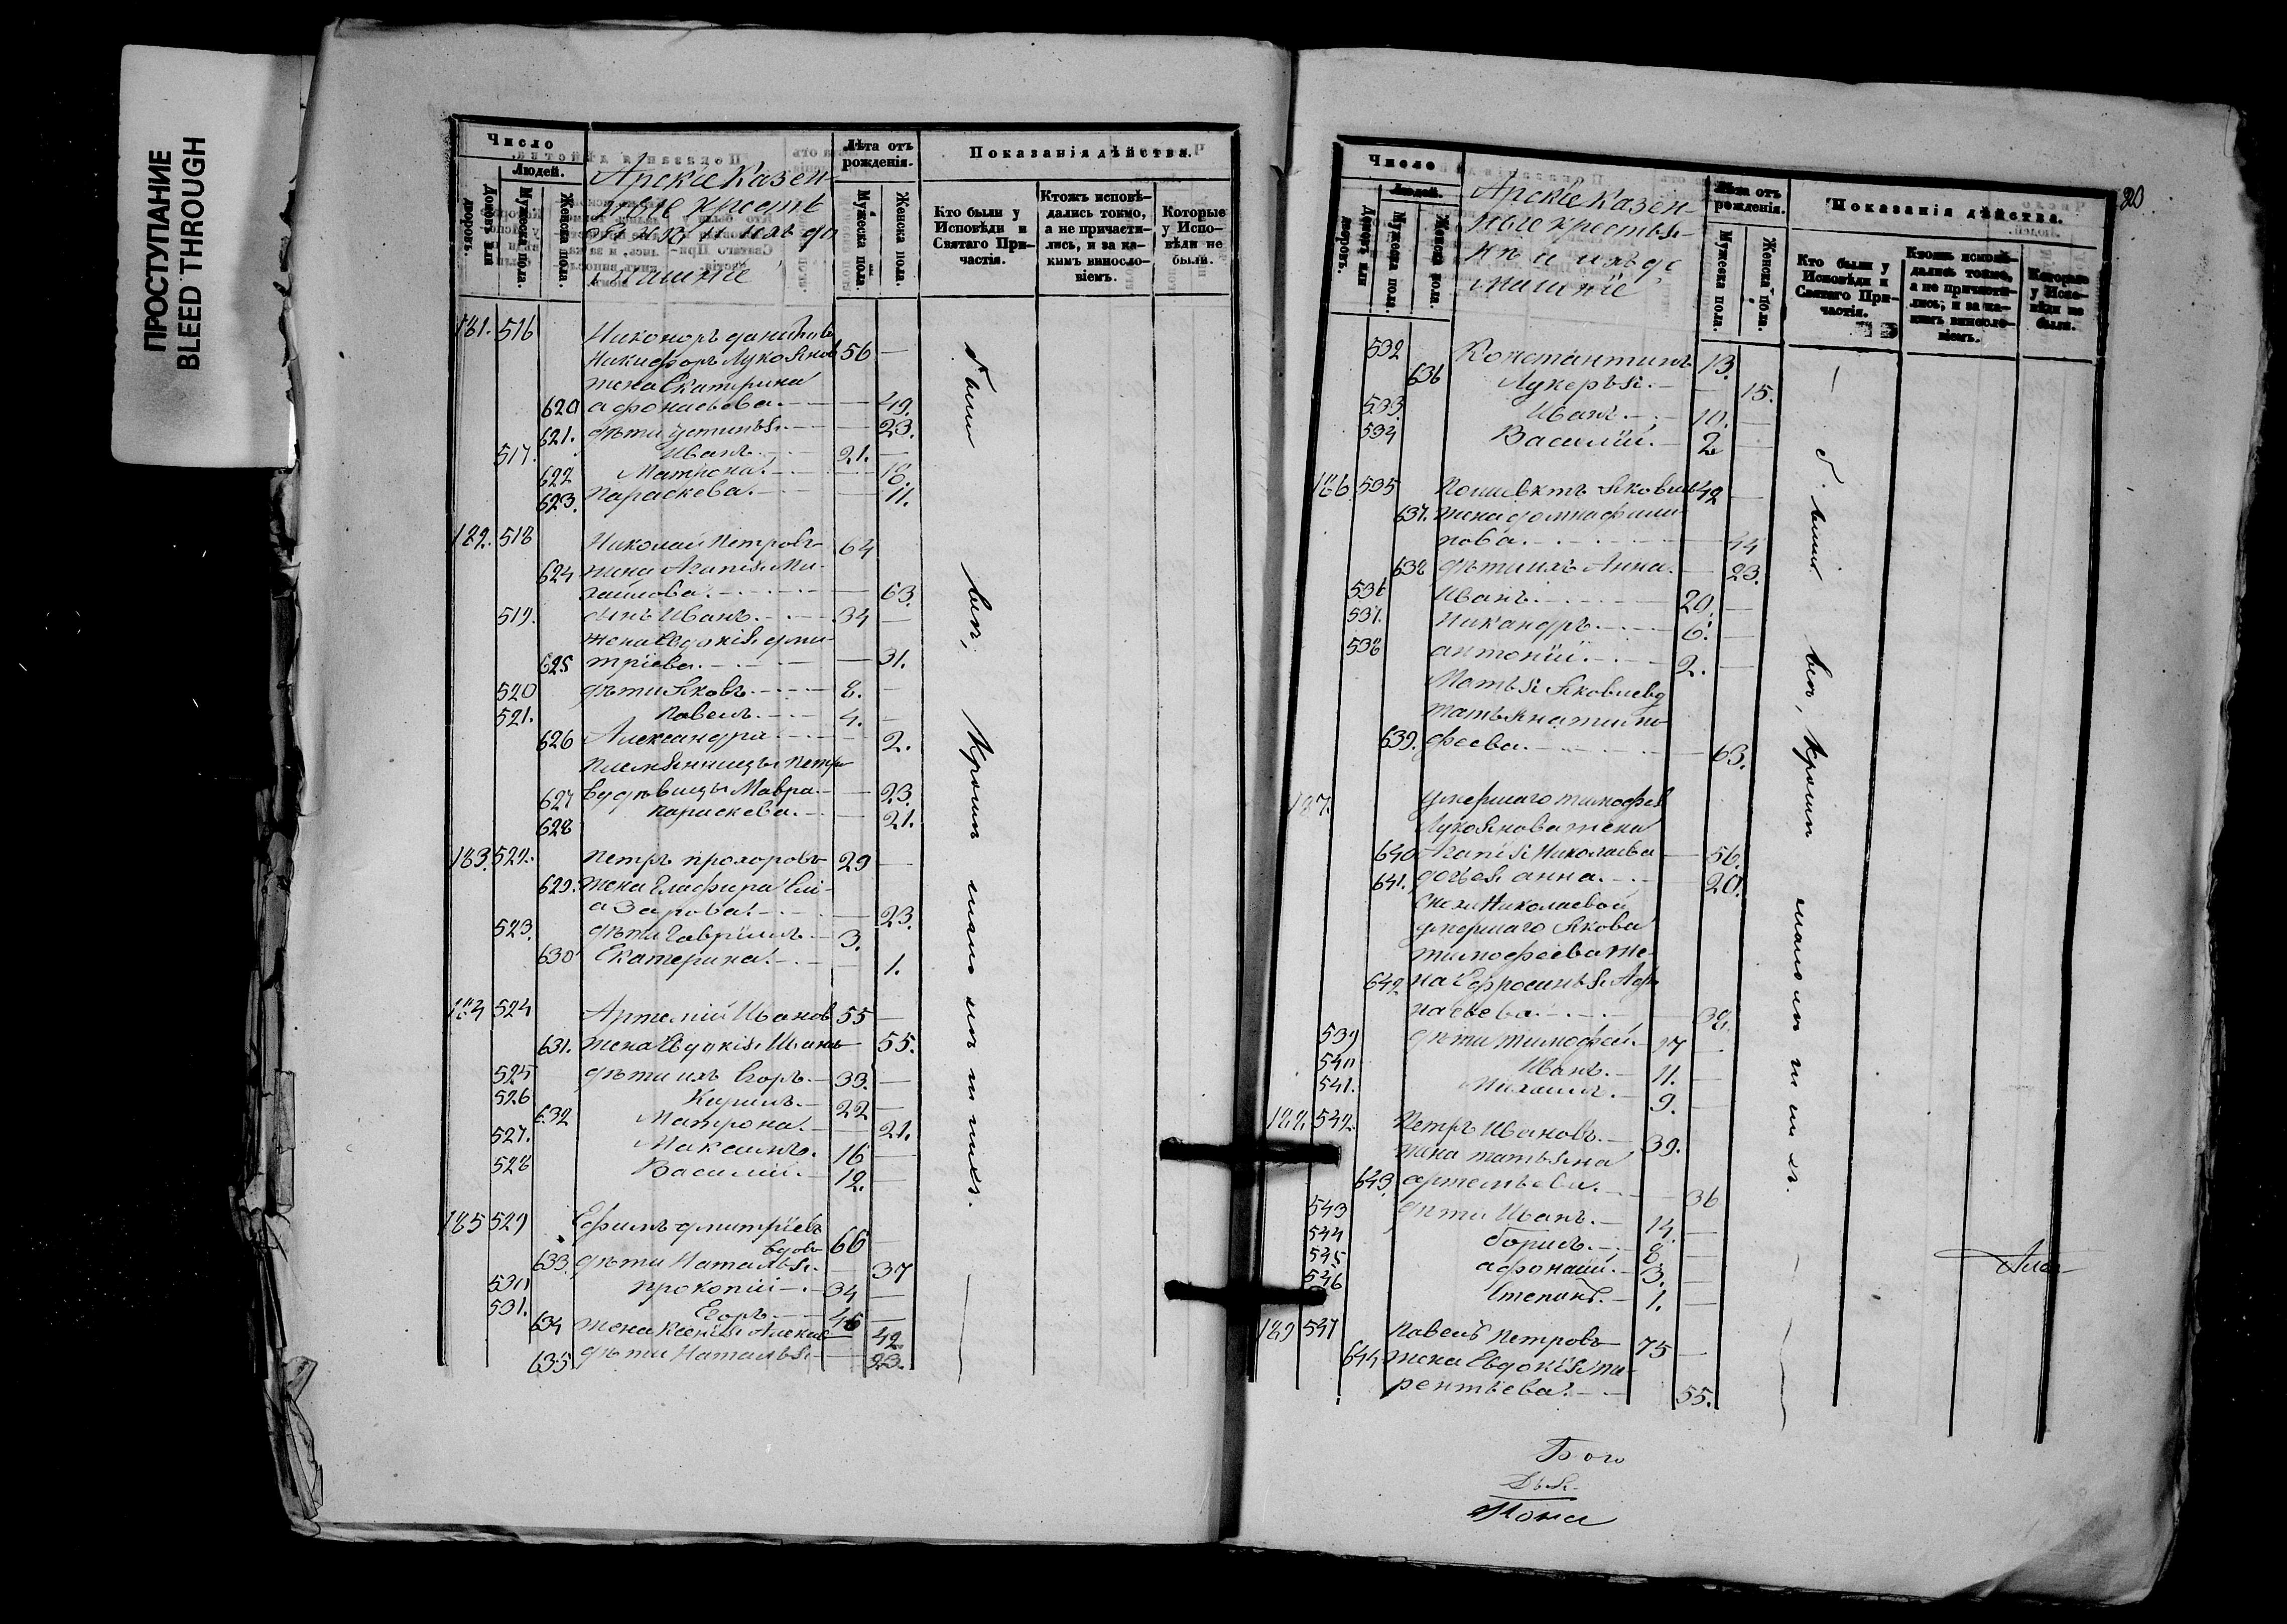 ПРОСТУПАНИЕ
BLEED THROUGH
Число
Людей.
Домовъ или дворовъ.
Мужеска пола.
Женска пола.
Арскіе Казен-
ные кресть
яне и ихъ до
машніе
Лѣта отъ рожденія.
Мужеска пола.
Женска пола.
Показанія дѣйства.
Кто были у Исповѣди и Святаго При-частія.
Ктожъ исповѣ-дались токмо, а не причасти-лись, и за ка-кимъ винословіемъ.
Которые у Испо-вѣди не были.
181. 516 Никоноръ
Никифоръ Лукоянов 56 —
жена Екатерина
620 афонасьева. — 49.
621. дѣти устинья. — 23.
517. Иванъ. 21. —
622 Матрона. — 18.
623. Параскева. — 11.
182. 518 Николай Петровъ 64
624 жена Агапія Ми-
хайлова. — 63.
519. сынъ Иванъ. 34 —
жена Евдокія дми-
625 тріева. — 31.
520 дѣти Яковъ. 8. —
521. Павелъ. 4. —
626 Александра — 2.
Племянницы Петр
627 вдовицы Мавра. — 23.
628 Параскева. — 21.
183. 522. Петръ прохоровъ 29 —
629. жена Глафира Ели-
азарова. — 23.
523. дѣти Гавріилъ. 3.
630 Екатерина. — 1.
184 524 Артемій Иванов 55 —
631. жена Евдокія Иван — 55.
525 дѣти ихъ Егоръ. 33. —
526 Кирилъ. 22 —
632 Матрона. — 21.
527. Максимъ. 16 —
528 Василій. 12. —
185 529 Ефимъ дмитріевъ 66 —
вдова
633. дѣти Наталья. 37
530 прокопій 34 —
531. Егоръ 46 —
634 жена Ксенія Алексѣ 42.
635 дѣти Наталья — 23.
были всѣ, кромѣ малолѣтнихъ.
20
Число
Людей.
Домовъ или дворовъ.
Мужеска пола.
Женска пола.
Арскіе Казен-
ные крестья-
не и ихъ до
машніе
Лѣта отъ рожденія.
Мужеска пола.
Женска пола.
Показанія дѣйства.
Кто были у Исповѣди и Святаго При-частія.
Ктожъ исповѣ-дались токмо, а не причасти-лись, и за ка-кимъ винословіемъ.
Которые у Испо-вѣди не были.
532 Константинъ 13.
636 Лукерья. — 15.
533. Иванъ. 10. —
534 Василій. 2 —
186 535 Полиевктъ Яковлев 42 —
637. жена домна фили-
пова. 44
638 дѣти ихъ Анна. — 23.
536 Иванъ. 20. —
537. Никандръ. 6. —
538 антоній. 2. —
Мать Яковлева
татьяна тимо-
639. феева. — 63.
187. умершаго тимофея
Лукоянова жена
640 Агапія Николаева — 56.
641. дочь ея анна. — 20.
сноха Николаевой
умершаго Якова
тимофеева же-
642 на Ефросинья Афо
насьева. — 38.
539 дѣти тимофей. 17 —
540 Иванъ. 11. —
541. Михаилъ. 9. —
188. 542. Петръ Ивановъ. 39.
жена татьяна
643. артемьева. — 36
543 дѣти Иванъ. 14. —
544 борисъ. 8. —
545 афонасій. 3. —
546 Степанъ. 1. —
189 547 Павелъ Петровъ 75 —
644 жена Евдокія те-
рентьева. 55.
были всѣ, кромѣ малолѣтнихъ.